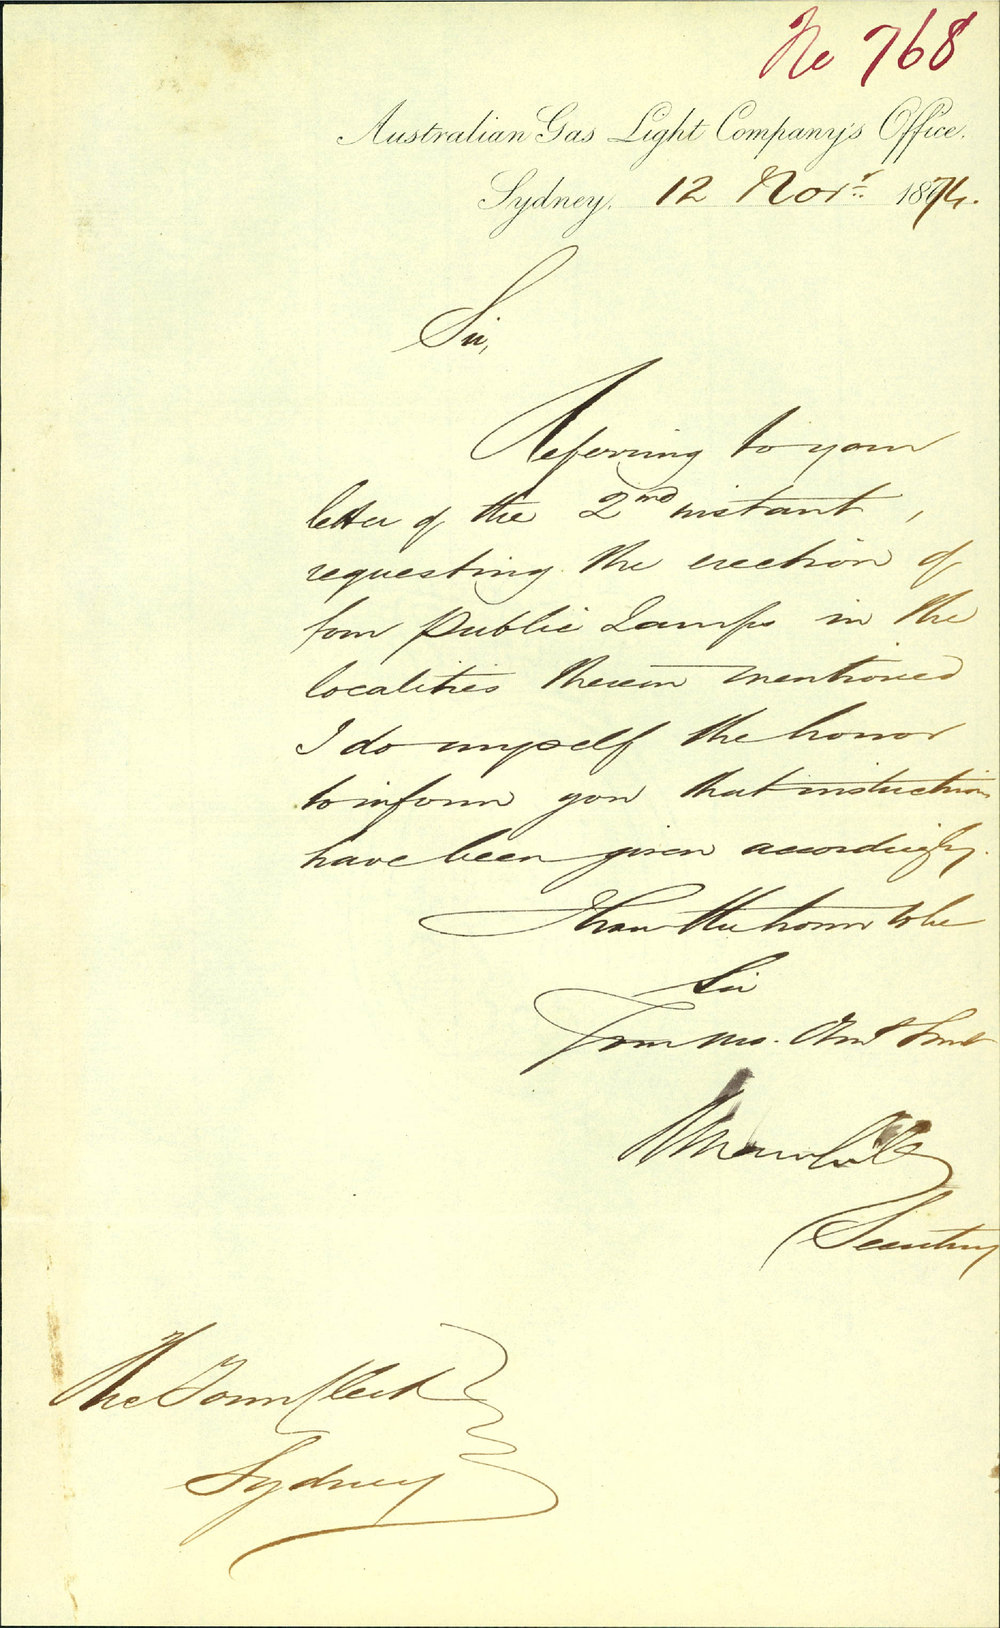 No 768
Australian Gas Light Company's Office.
Sydney. 12 Novr. 1874.
Sir,
Referring to your
letter of the 2nd instant,
requesting the erection of
four Public Lamps in the
localities therein mentioned
I do myself the honor
to inform you that instructions
have been given accordingly.
I have the honor to be
Sir
Your mo. Obt Servt
Secretary
The Town Clerk
Sydney